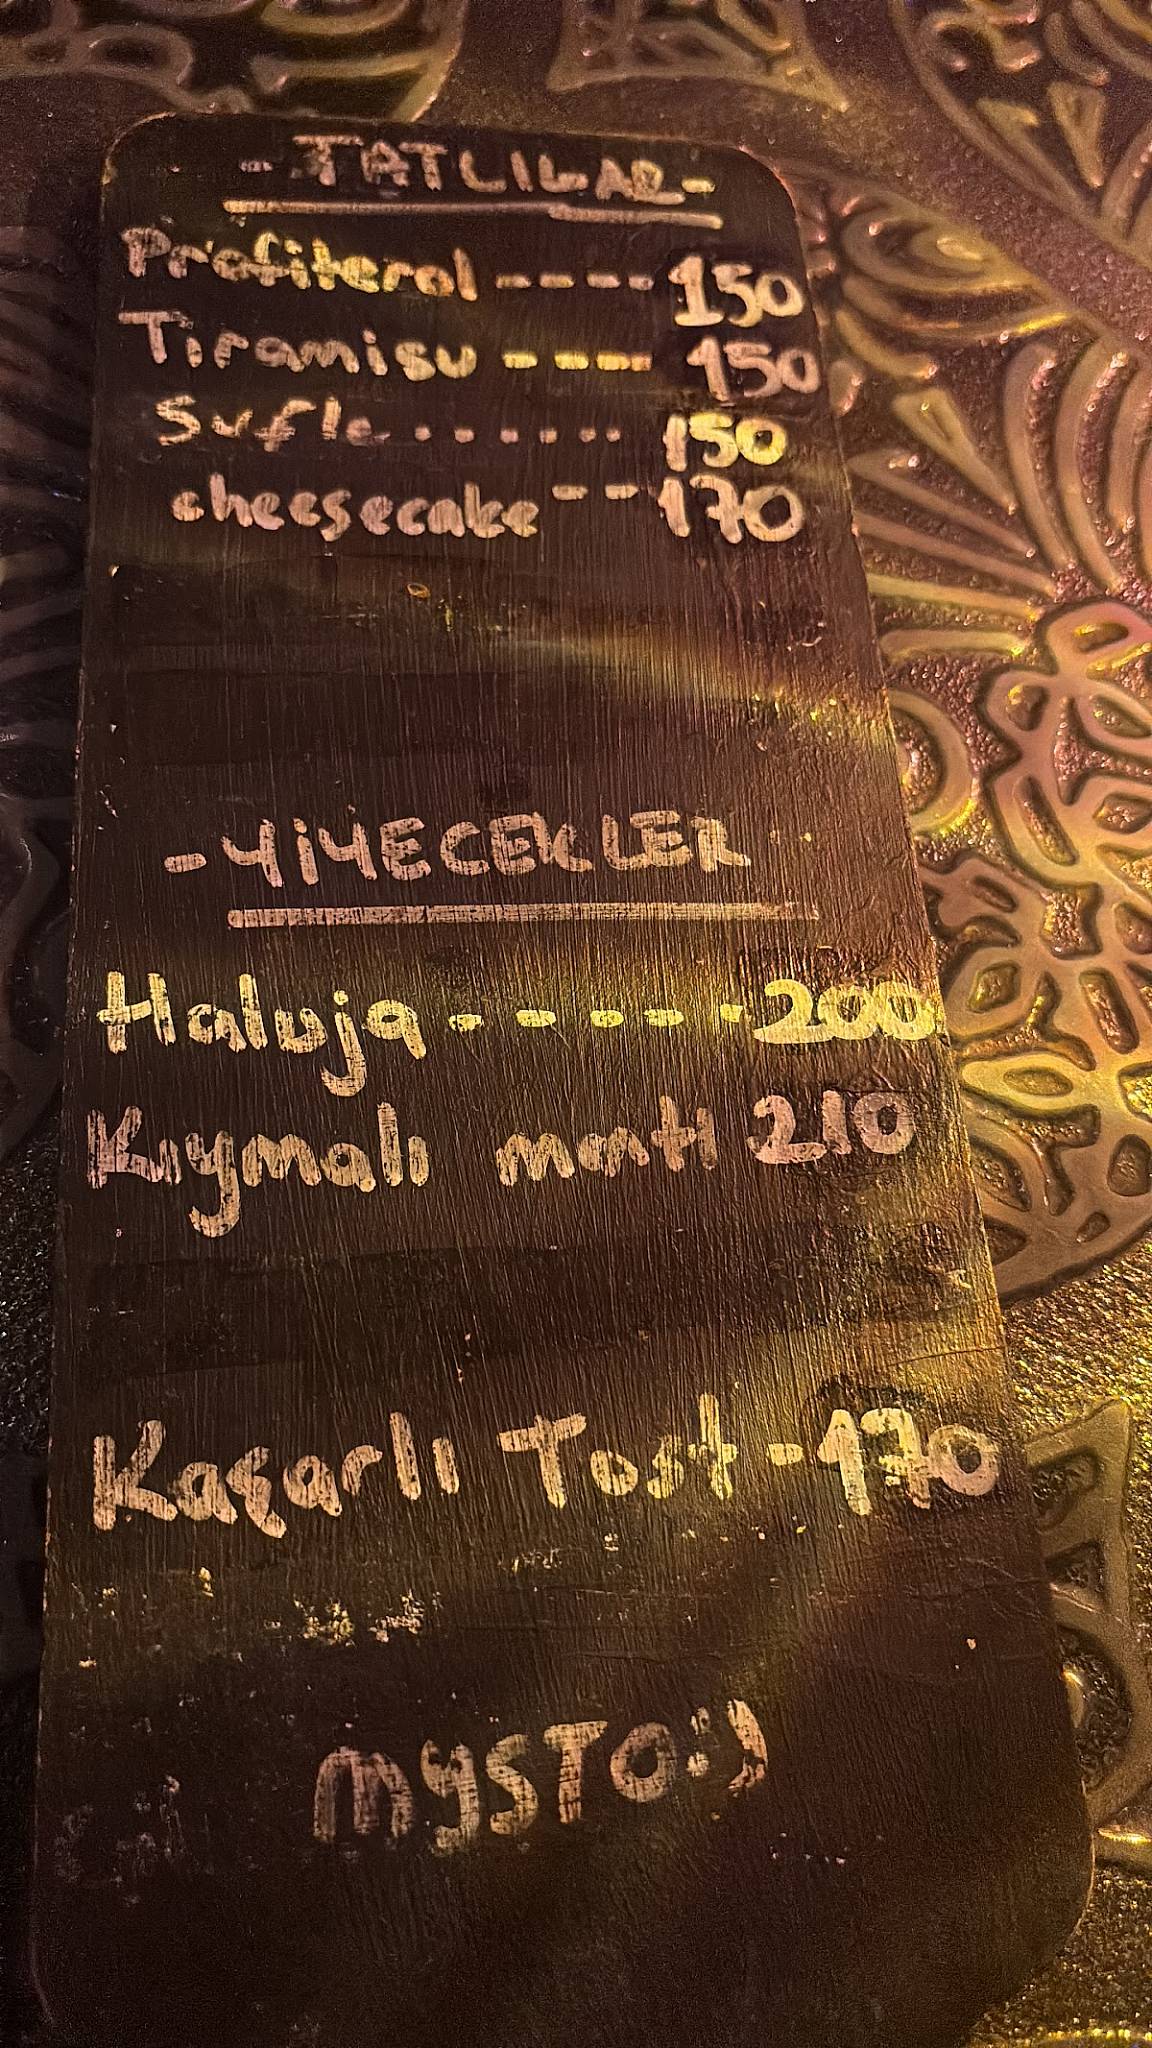 - TATLILAR -
Profiterol ---- 150
Tiramisu ---- 150
Sufle ...... 150
cheesecake -- 170
- YİYECEKLER
Haluja .-.-.-. 200
Kıymalı mantı 210
Kaşarlı Tost - 170
MYSTO:)